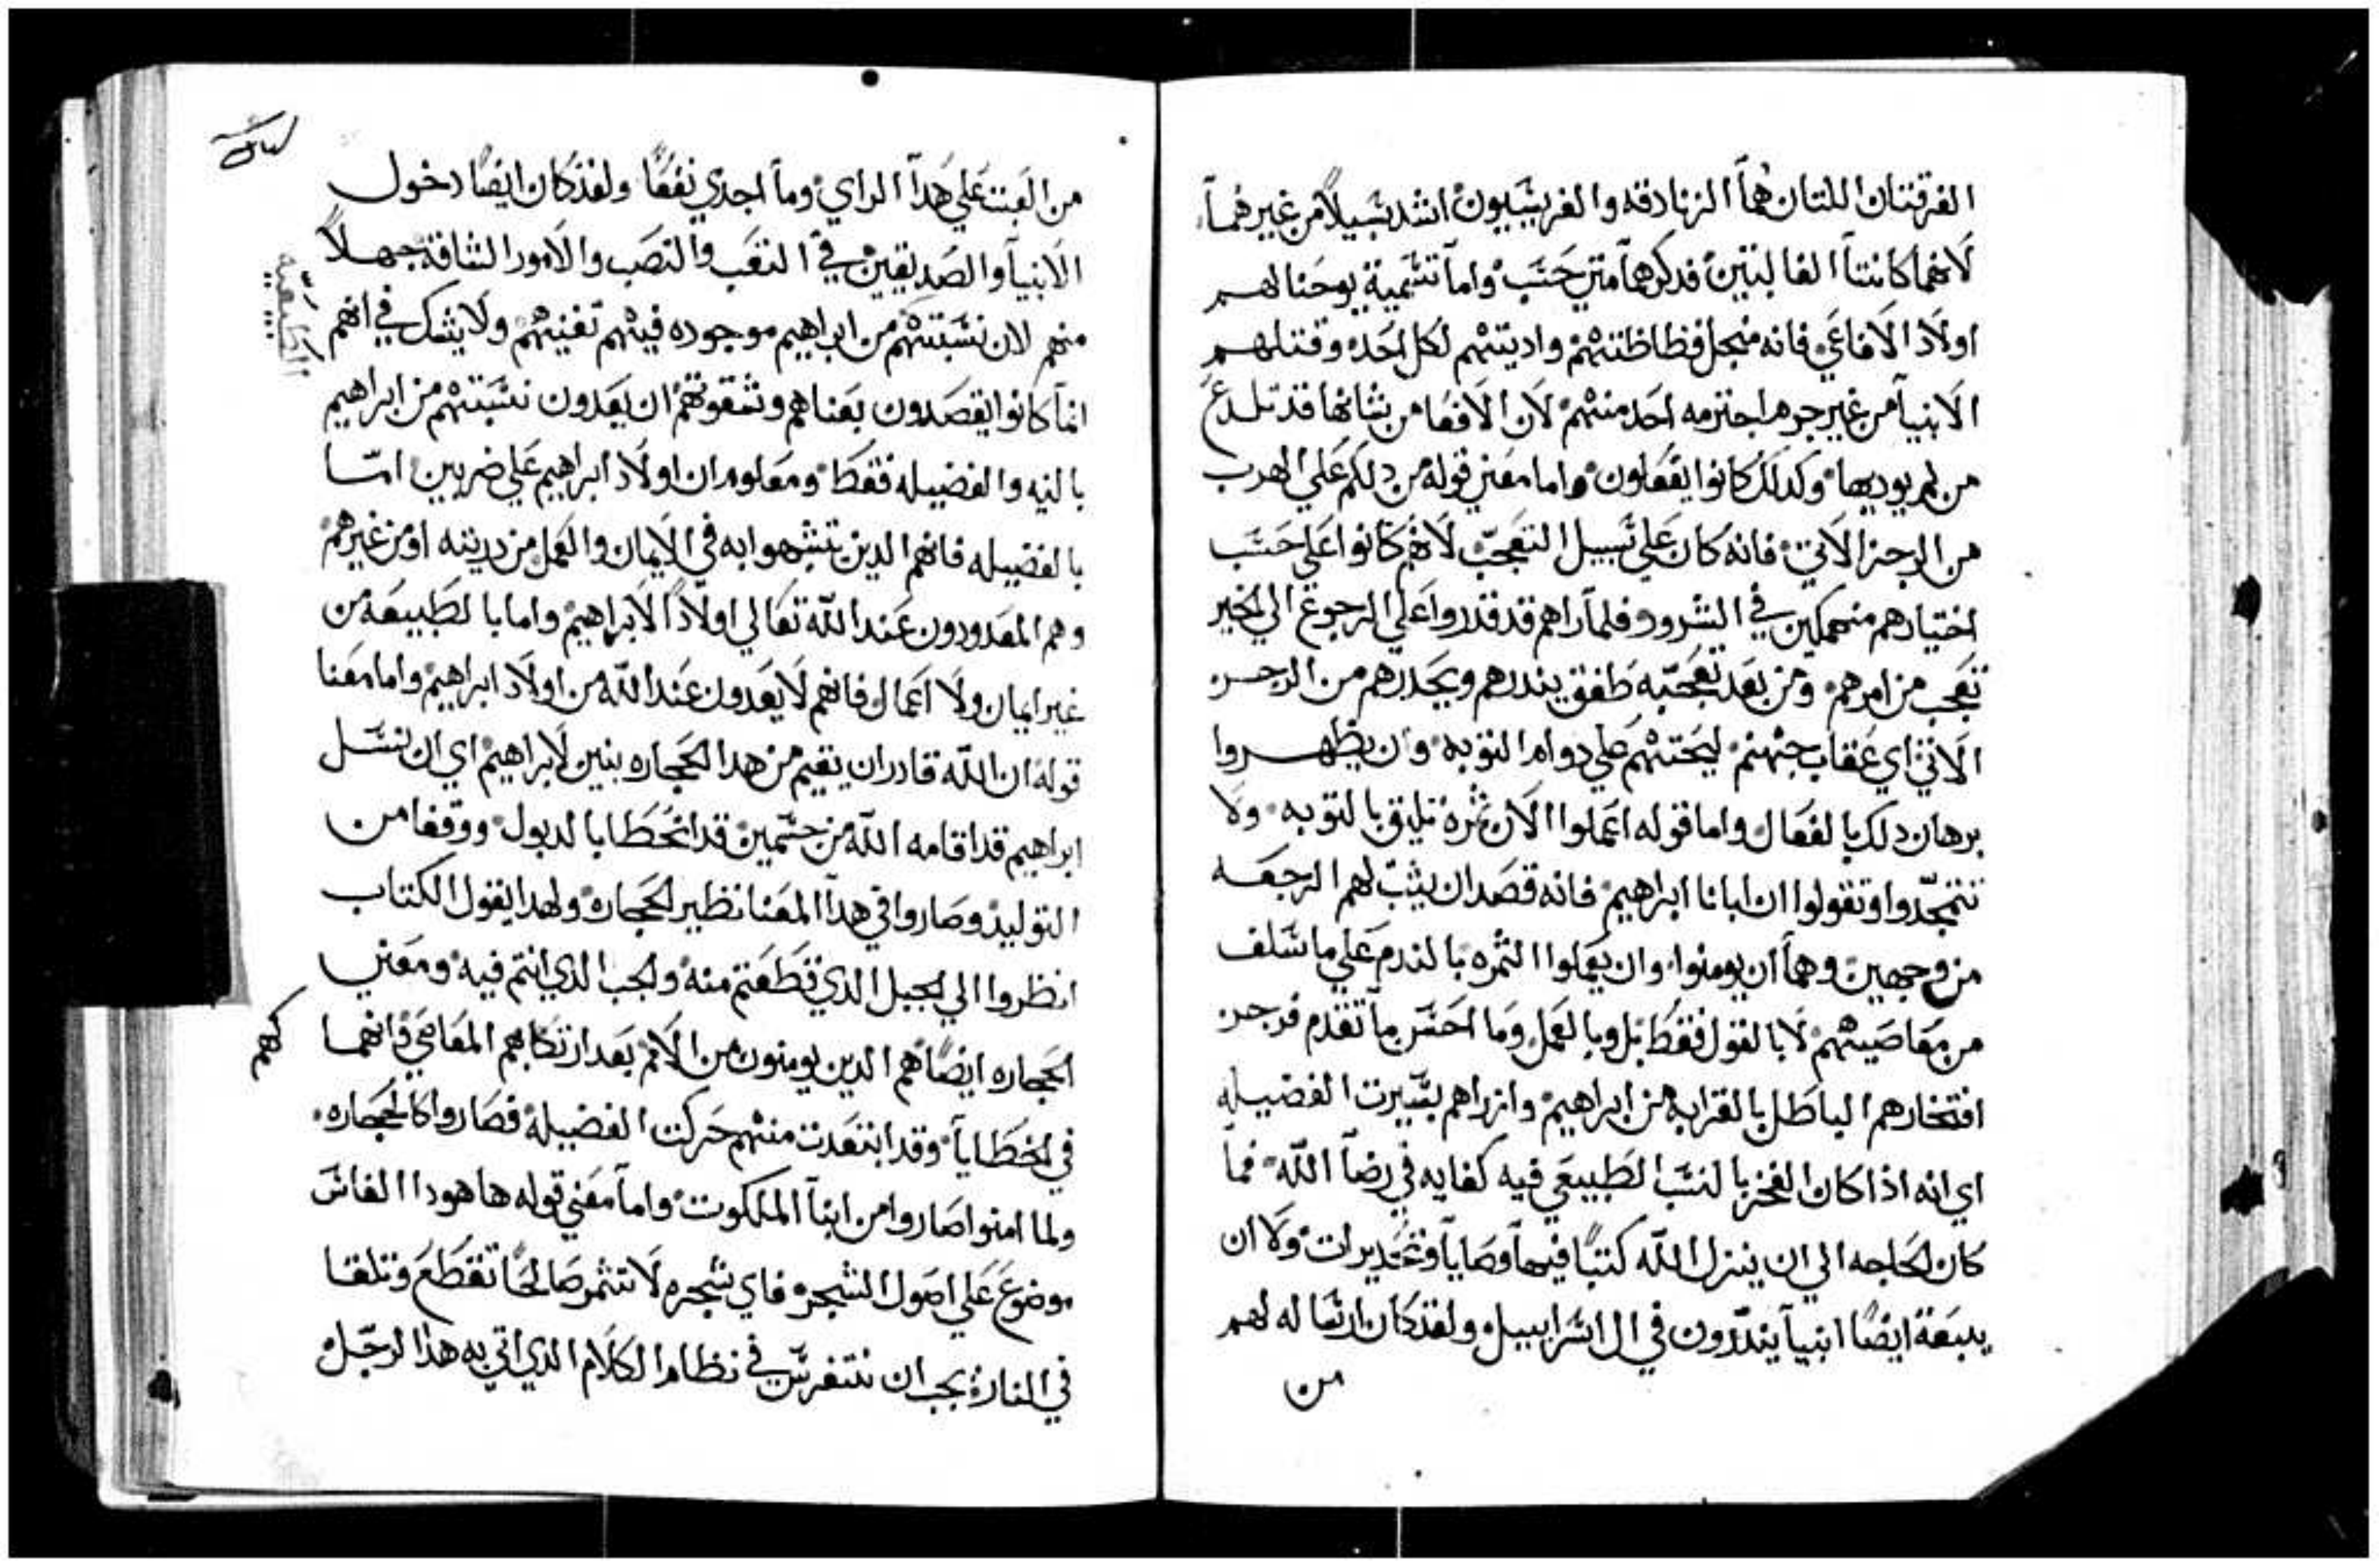 الفرقتان اللتان هما الزنادقه والفريسيون اشد سبيلاً من غيرهما
لانهما كانتا الغالبتين فدكرهما متي حسب واما تسمية يوحنا لهم
اولاد الافاعي فانه من اجل فظاظتهم واديتهم لكل احد وقتلهم
الانبيا من غير جرم اجترمه احد منهم لان الافعا من شانها قد تلدغ
من لم يوديها وكدلك كانوا يفعلون واما معني قوله من دلكم علي الهرب
من الرجز الاتي فانه كان علي سبيل التعجب لانهم كانوا علي حسب
اختيارهم منهمكين في الشرور فلما راهم قد قدروا علي الرجوع الي الخير
تعجب من امرهم ومن بعد تعجبه طفق يندرهم ويحدرهم من الرجز
الاتي اي عقاب جهنم ليحتهم علي دوام التوبه وان يظهروا
برهان دلك بالفعال واما قوله اعملوا الان ثمره تليق بالتوبه ولا
تتمجدوا وتقولوا ان ابانا ابراهيم فانه قصد ان يثبت لهم الرجعه
من وجهين وهما ان يومنوا وان يعملوا الثمره بالندم علي ما سلف
من معاصيهم لا بالقول فقط بل وبالعمل وما احسن ما تقدم فزجر
افتخارهم الباطل بالقرابه من ابراهيم وازراهم بسيرت الفضيله
اي انه اذا كان الفخر بالنسب الطبيعي فيه كفايه في رضا الله فما
كان الحاجه الي ان ينزل الله كتبًا فيها وصايا وتحديرات ولا ان
يبعة ايضًا انبيا يندرون في ال اسراييل ولقد كان ارساله لهم
من
من العبت علي هدا الراي وما اجدي نفعًا ولقد كان ايضًا دخول
الانبيا والصديقين في التعب والنصب والامور الشاقة جهلاً
منهم لان نسبتهم من ابراهيم موجوده فيهم تغنيهم ولا يشك في انهم
انما كانوا يقصدون بعناهم وشقوتهم ان يعدون نسبتهم من ابراهيم
بالنيه والفضيله فقط ومعلوم ان اولاد ابراهيم علي ضربين اما
بالفضيله فانهم الدين تشبهوا به في الايمان والعمل من دريته او من غيرهم
وهم المعدودون عند الله تعالي اولادًا لابراهيم واما بالطبيعه من
غير ايمان ولا اعمال فانهم لا يعدون عند الله من اولاد ابراهيم واما معنا
قوله ان الله قادر ان يقيم من هدا الحجاره بنين لابراهيم اي ان نسل
ابراهيم قد اقامه الله من جسمين قد انحطا بالدبول ووقفا من
التوليد وصاروا في هدا المعنا نظير الحجاره ولهدا يقول الكتاب
انظروا الي الجبل الدي قطعتم منه والجب الدي انتم فيه ومعني
الحجاره ايضًا هم الدين يومنون من الامم بعد ارتكابهم المعاصي وانهما
في الخطايا وقد ابتعدت منهم حركت الفضيله فصاروا كالحجاره
ولما امنوا صاروا من ابنا الملكوت واما معني قوله ها هودا الفاس
موضوع علي اصول الشجر فاي شجره لا تثمر صالحًا تقطع وتلقا
في النار يجب ان نتفرس في نظام الكلام الدي اتي به هدا الرجل